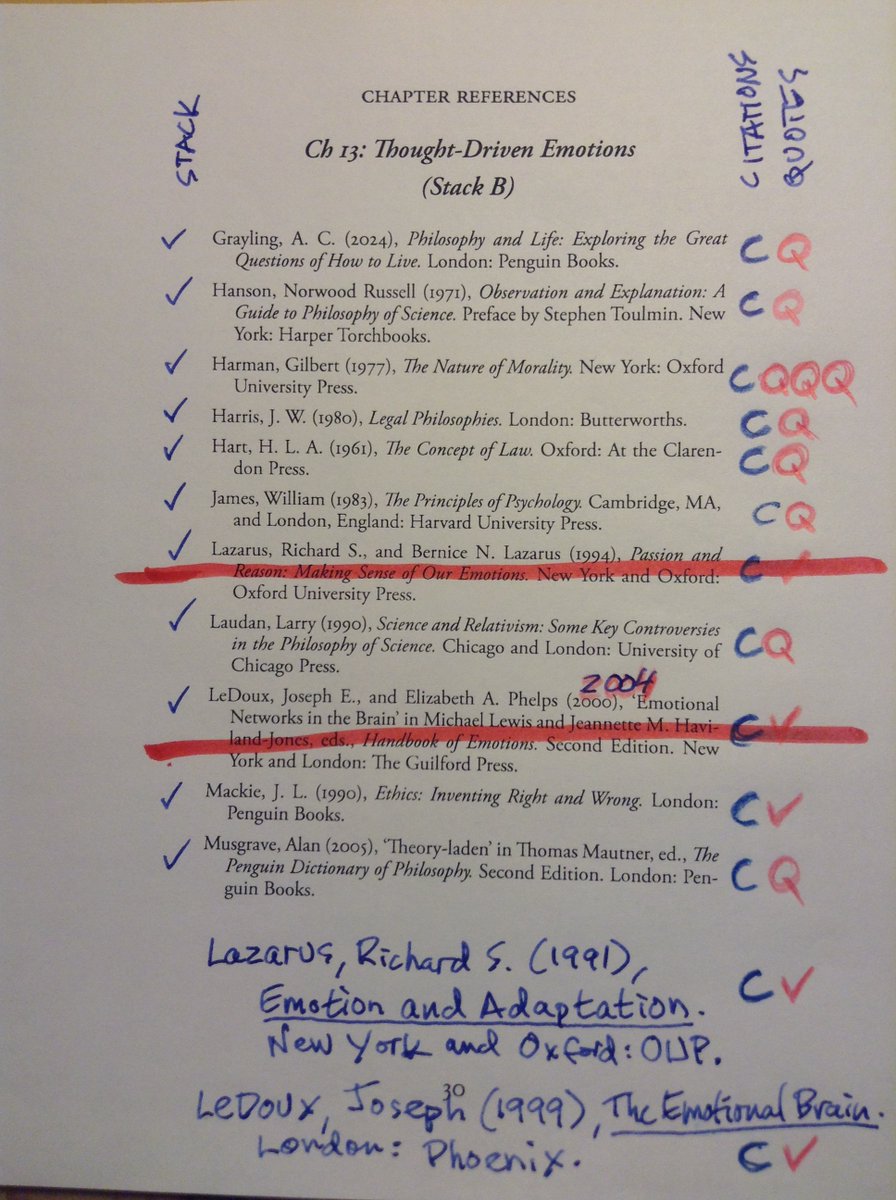 STACK
CITATIONS
QUOTES
CHAPTER REFERENCES
Ch 13: Thought-Driven Emotions
(Stack B)
✓ Grayling, A. C. (2024), Philosophy and Life: Exploring the Great C Q
Questions of How to Live. London: Penguin Books.
✓ Hanson, Norwood Russell (1971), Observation and Explanation: A C Q
Guide to Philosophy of Science. Preface by Stephen Toulmin. New
York: Harper Torchbooks.
✓ Harman, Gilbert (1977), The Nature of Morality. New York: Oxford C QQQ
University Press.
✓ Harris, J. W. (1980), Legal Philosophies. London: Butterworths. C Q
✓ Hart, H. L. A. (1961), The Concept of Law. Oxford: At the Claren- C Q
don Press.
✓ James, William (1983), The Principles of Psychology. Cambridge, MA, C Q
and London, England: Harvard University Press.
✓ Lazarus, Richard S., and Bernice N. Lazarus (1994), Passion and C ✓
Reason: Making Sense of Our Emotions. New York and Oxford:
Oxford University Press.
✓ Laudan, Larry (1990), Science and Relativism: Some Key Controversies C Q
in the Philosophy of Science. Chicago and London: University of
Chicago Press.
2004
✓ LeDoux, Joseph E., and Elizabeth A. Phelps (2000), ‘Emotional C ✓
Networks in the Brain’ in Michael Lewis and Jeannette M. Havi-
land-Jones, eds., Handbook of Emotions. Second Edition. New
York and London: The Guilford Press.
✓ Mackie, J. L. (1990), Ethics: Inventing Right and Wrong. London: C ✓
Penguin Books.
✓ Musgrave, Alan (2005), ‘Theory-laden’ in Thomas Mautner, ed., The C Q
Penguin Dictionary of Philosophy. Second Edition. London: Pen-
guin Books.
Lazarus, Richard S. (1991), C ✓
Emotion and Adaptation.
New York and Oxford: OUP.
30
LeDoux, Joseph (1999), The Emotional Brain.
London: Phoenix. C ✓